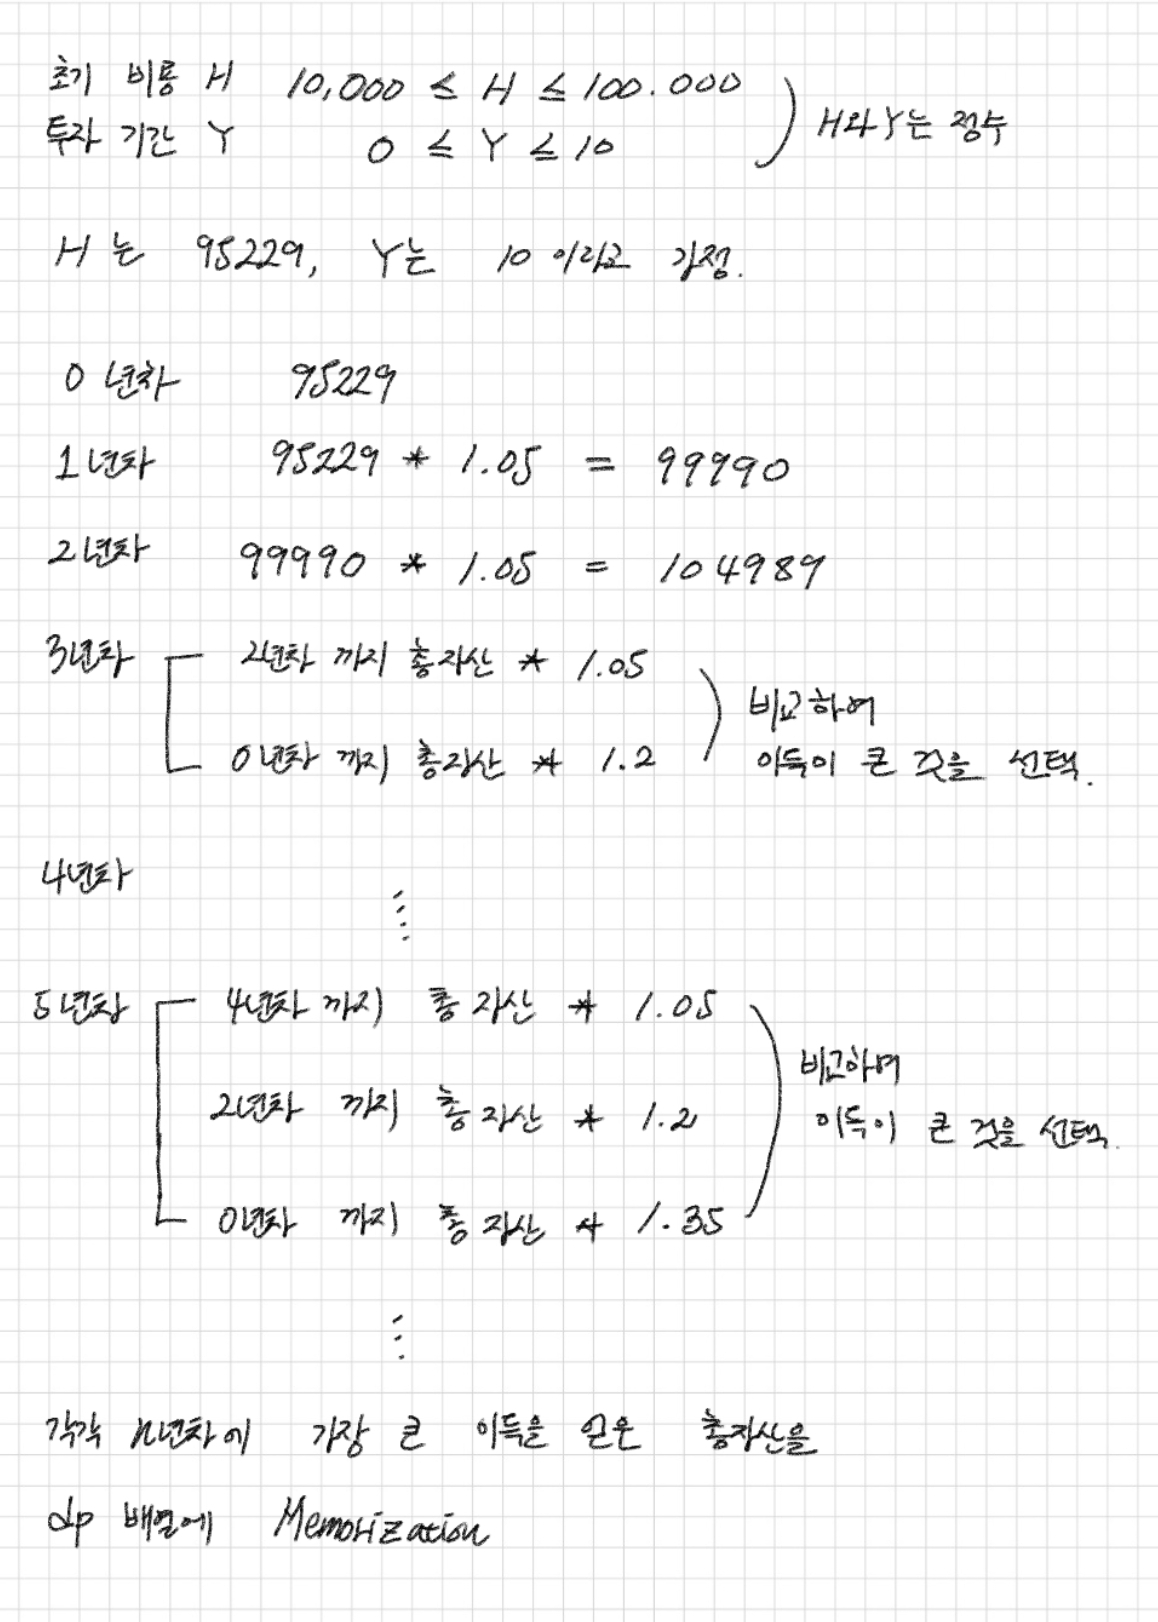 초기 비용 H 10,000 ≤ H ≤ 100.000
투자 기간 Y 0 ≤ Y ≤ 10
H와 Y는 정수
H 는 95229, Y는 10 이라고 가정.
0 년차 95229
1 년차 95229 * 1.05 = 99990
2년차 99990 * 1.05 = 104989
3년차 2년차 까지 총자산 * 1.05
0년차 까지 총자산 * 1.2
비교하여
이득이 큰 것을 선택.
4년차
⋮
5년차 4년차 까지 총 자산 * 1.05
2년차 까지 총 자산 * 1.2
0년차 까지 총 자산 * 1.35
비교하여
이득이 큰 것을 선택.
⋮
각각 n년차에 가장 큰 이득을 얻은 총자산을
dp 배열에 Memorization